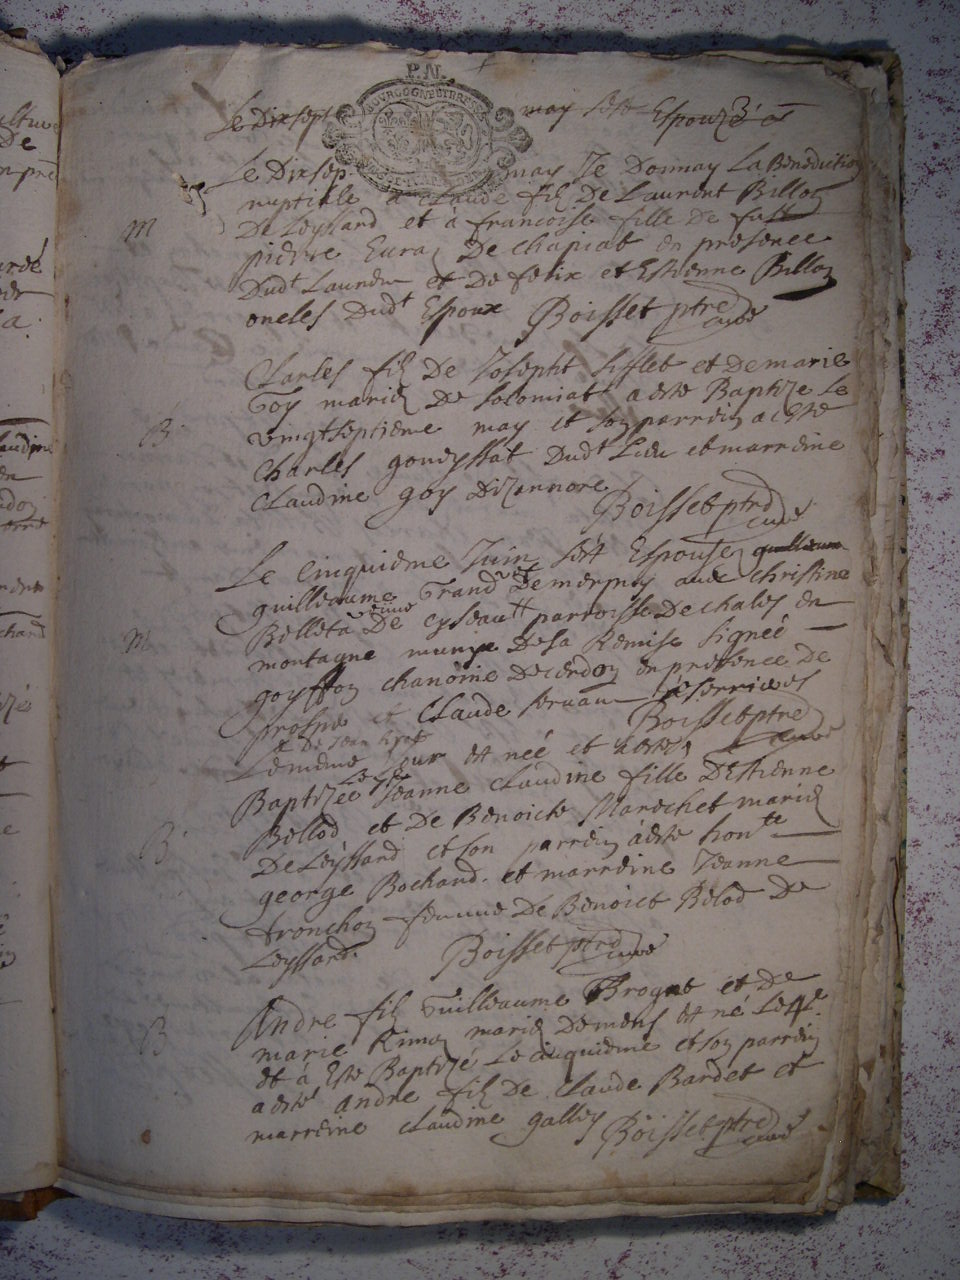 P.N.
BOURGOGNE ET BRESSE
Le Dixsept may sest Espouzé
Le Dixsep may Ie Donnay La Benediction
nuptialle a Claude fils De Laurent Billon
De Leyssard et à francoise fille de fust
M
pierre De Chapiat en presence
Dudt Laurent et De felix et Estienne Billon
oncles Dudt Espoux Boisset ptre
curé
Charles fils De Joseph Sifflet et De marie
Goy mariez De Solomiat a este Baptize Le
B
vingtseptieme may et son parrein a este
Charles goueyssat Dudt Lieu et marreine
Claudine goy Dizennore
Boisset ptre
curé
Le cinquieme Juin sest Espousez guilleaume
guilleaume Grand De merpuis avec Christine
Belleta De parroisse De Chales en
M
montagne munye De La Remise signeé
goyffon chanoine De cerdon en presence De
prosper et Claude
Boisset ptre
curé
Le mesme Jour et neé et a este
Baptizeé Jeanne Claudine fille D'Estienne
Bellod et De Benoicte Marechet mariez
B
De Leyssard et son parrein a este honte
george Bochard et marreine Jeanne
tronchon femme De Benoict Belod De
Leyssard.
Boisset ptre
curé
B
Andre fils Guilleaume Brogat et De
marie mariez est né Le 4e
et a Este Baptizé Le cinquieme et son parrein
a esté andre fils De Claude Bardet et
marreine Claudine galley Boisset ptre
curé